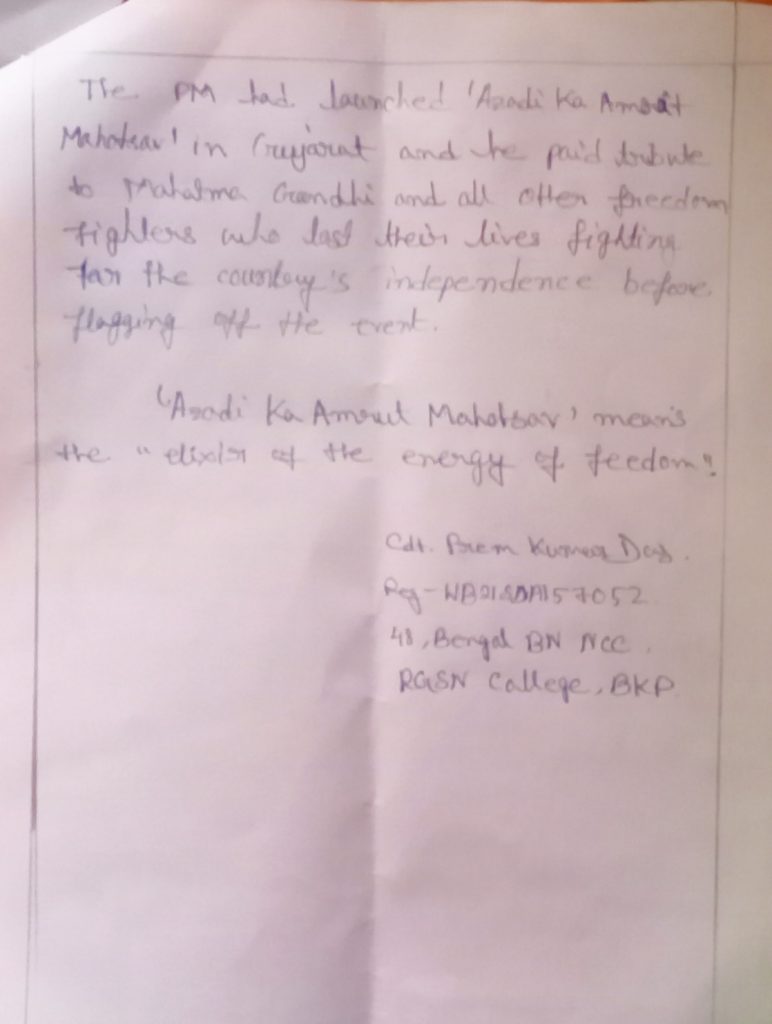 The PM had launched 'Azadi Ka Amrut
Mahotsav' in Gujarat and he paid tribute
to Mahatma Gandhi and all other freedom
fighters who lost their lives fighting
for the country's independence before
flagging off the event.
'Azadi Ka Amrut Mahotsav' means
the "elixir of the energy of feedom".
Cdt. Prem Kumar Das.
Reg-WB21SDA157052
48, Bengal BN NCC.
RGSN College, BKP